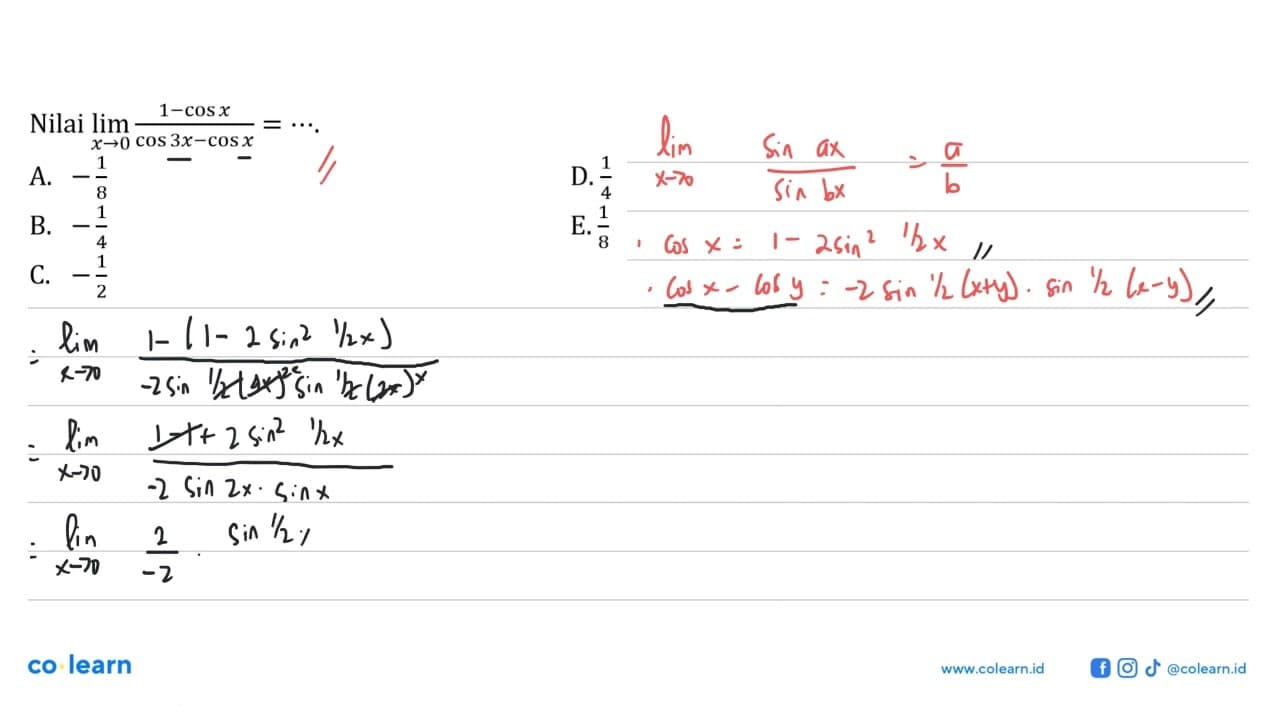 Nilai lim x→0 1−cos x / cos 3x−cos x = ⋯.
A. −1/8
B. −1/4
C. −1/2
D. 1/4
E. 1/8
lim x→0 sin ax / sin bx = a/b
· cos x = 1 − 2 sin² 1/2 x
· cos x − cos y = −2 sin 1/2 (x+y) . sin 1/2 (x−y)
= lim x→0 1− (1− 2 sin² 1/2 x) / −2 sin 1/2 (4x) 2x sin 1/2 (2x) x
= lim x→0 1−1+ 2 sin² 1/2 x / −2 sin 2x . sin x
= lim x→0 2/−2 . sin 1/2
co·learn
www.colearn.id @colearn.id